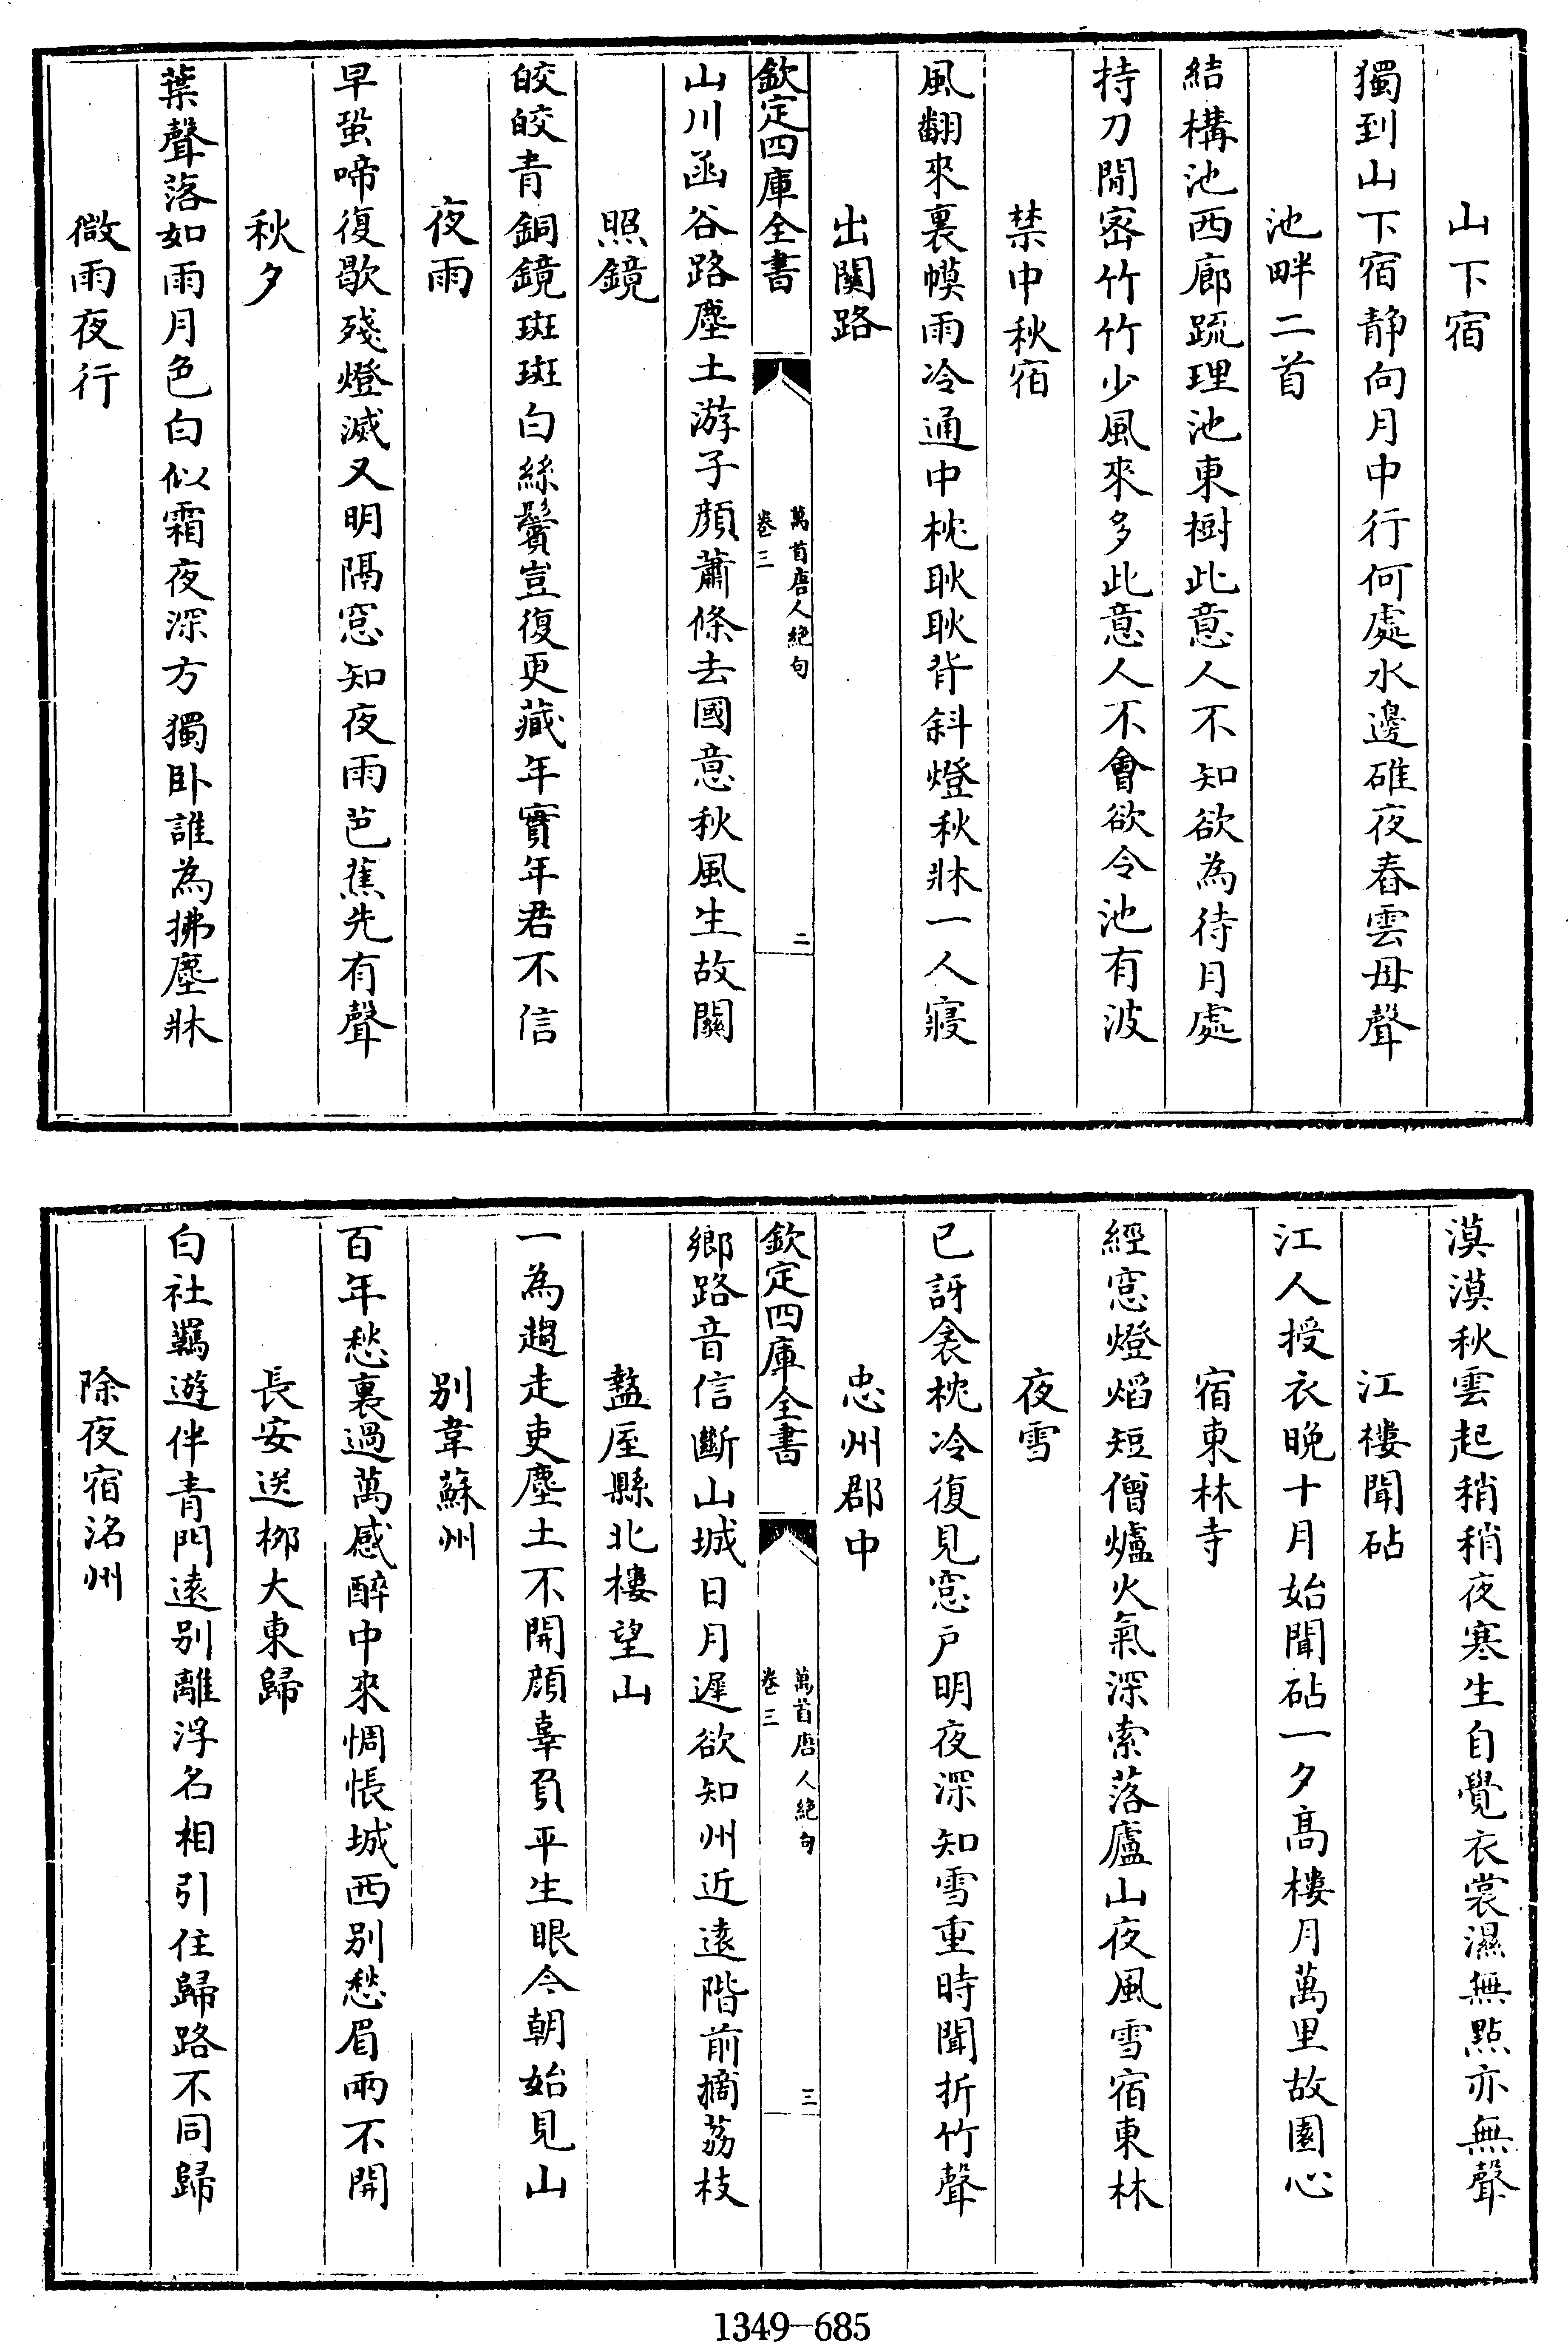 山下宿
獨到山下宿静向月中行何處水邊碓夜舂雲母聲
池畔二首
結構池西廊䟽理池東樹此意人不知欲為待月處
持刀間宻竹竹少風來多此意人不㑹欲令池有波
禁中秋宿
風翻朱裏幙雨冷通中枕耿耿背斜燈秋牀一人寢
出關路
欽定四庫全書
萬首唐人絶句
卷三
二
山川函谷路塵土游子顔蕭條去國意秋風生故關
照鏡
皎皎青銅鏡斑斑白絲鬢豈復更藏年實年君不信
夜雨
早蛩啼復歇殘燈滅又明隔窓知夜雨芭蕉先有聲
秋夕
葉聲落如雨月色白似霜夜深方獨卧誰為拂塵牀
微雨夜行
漠漠秋雲起稍稍夜寒生自覺衣裳濕無點亦無聲
江樓聞砧
江人授衣晚十月始聞砧一夕髙樓月萬里故園心
宿東林寺
經窓燈熖短僧爐火氣深索落廬山夜風雪宿東林
夜雪
已訝衾枕冷復見窓户明夜深知雪重時聞折竹聲
忠州郡中
欽定四庫全書
萬首唐人絶句
卷三
三
鄉路音信斷山城日月遲欲知州近遠階前摘荔枝
盩厔縣北樓望山
一為趨走吏塵土不開顔辜負平生眼今朝始見山
别韋蘇州
百年愁裏過萬感醉中來惆悵城西别愁眉兩不開
長安送栁大東歸
白社羈遊伴青門逺别離浮名相引住歸路不同歸
除夜宿洺州
1349-685